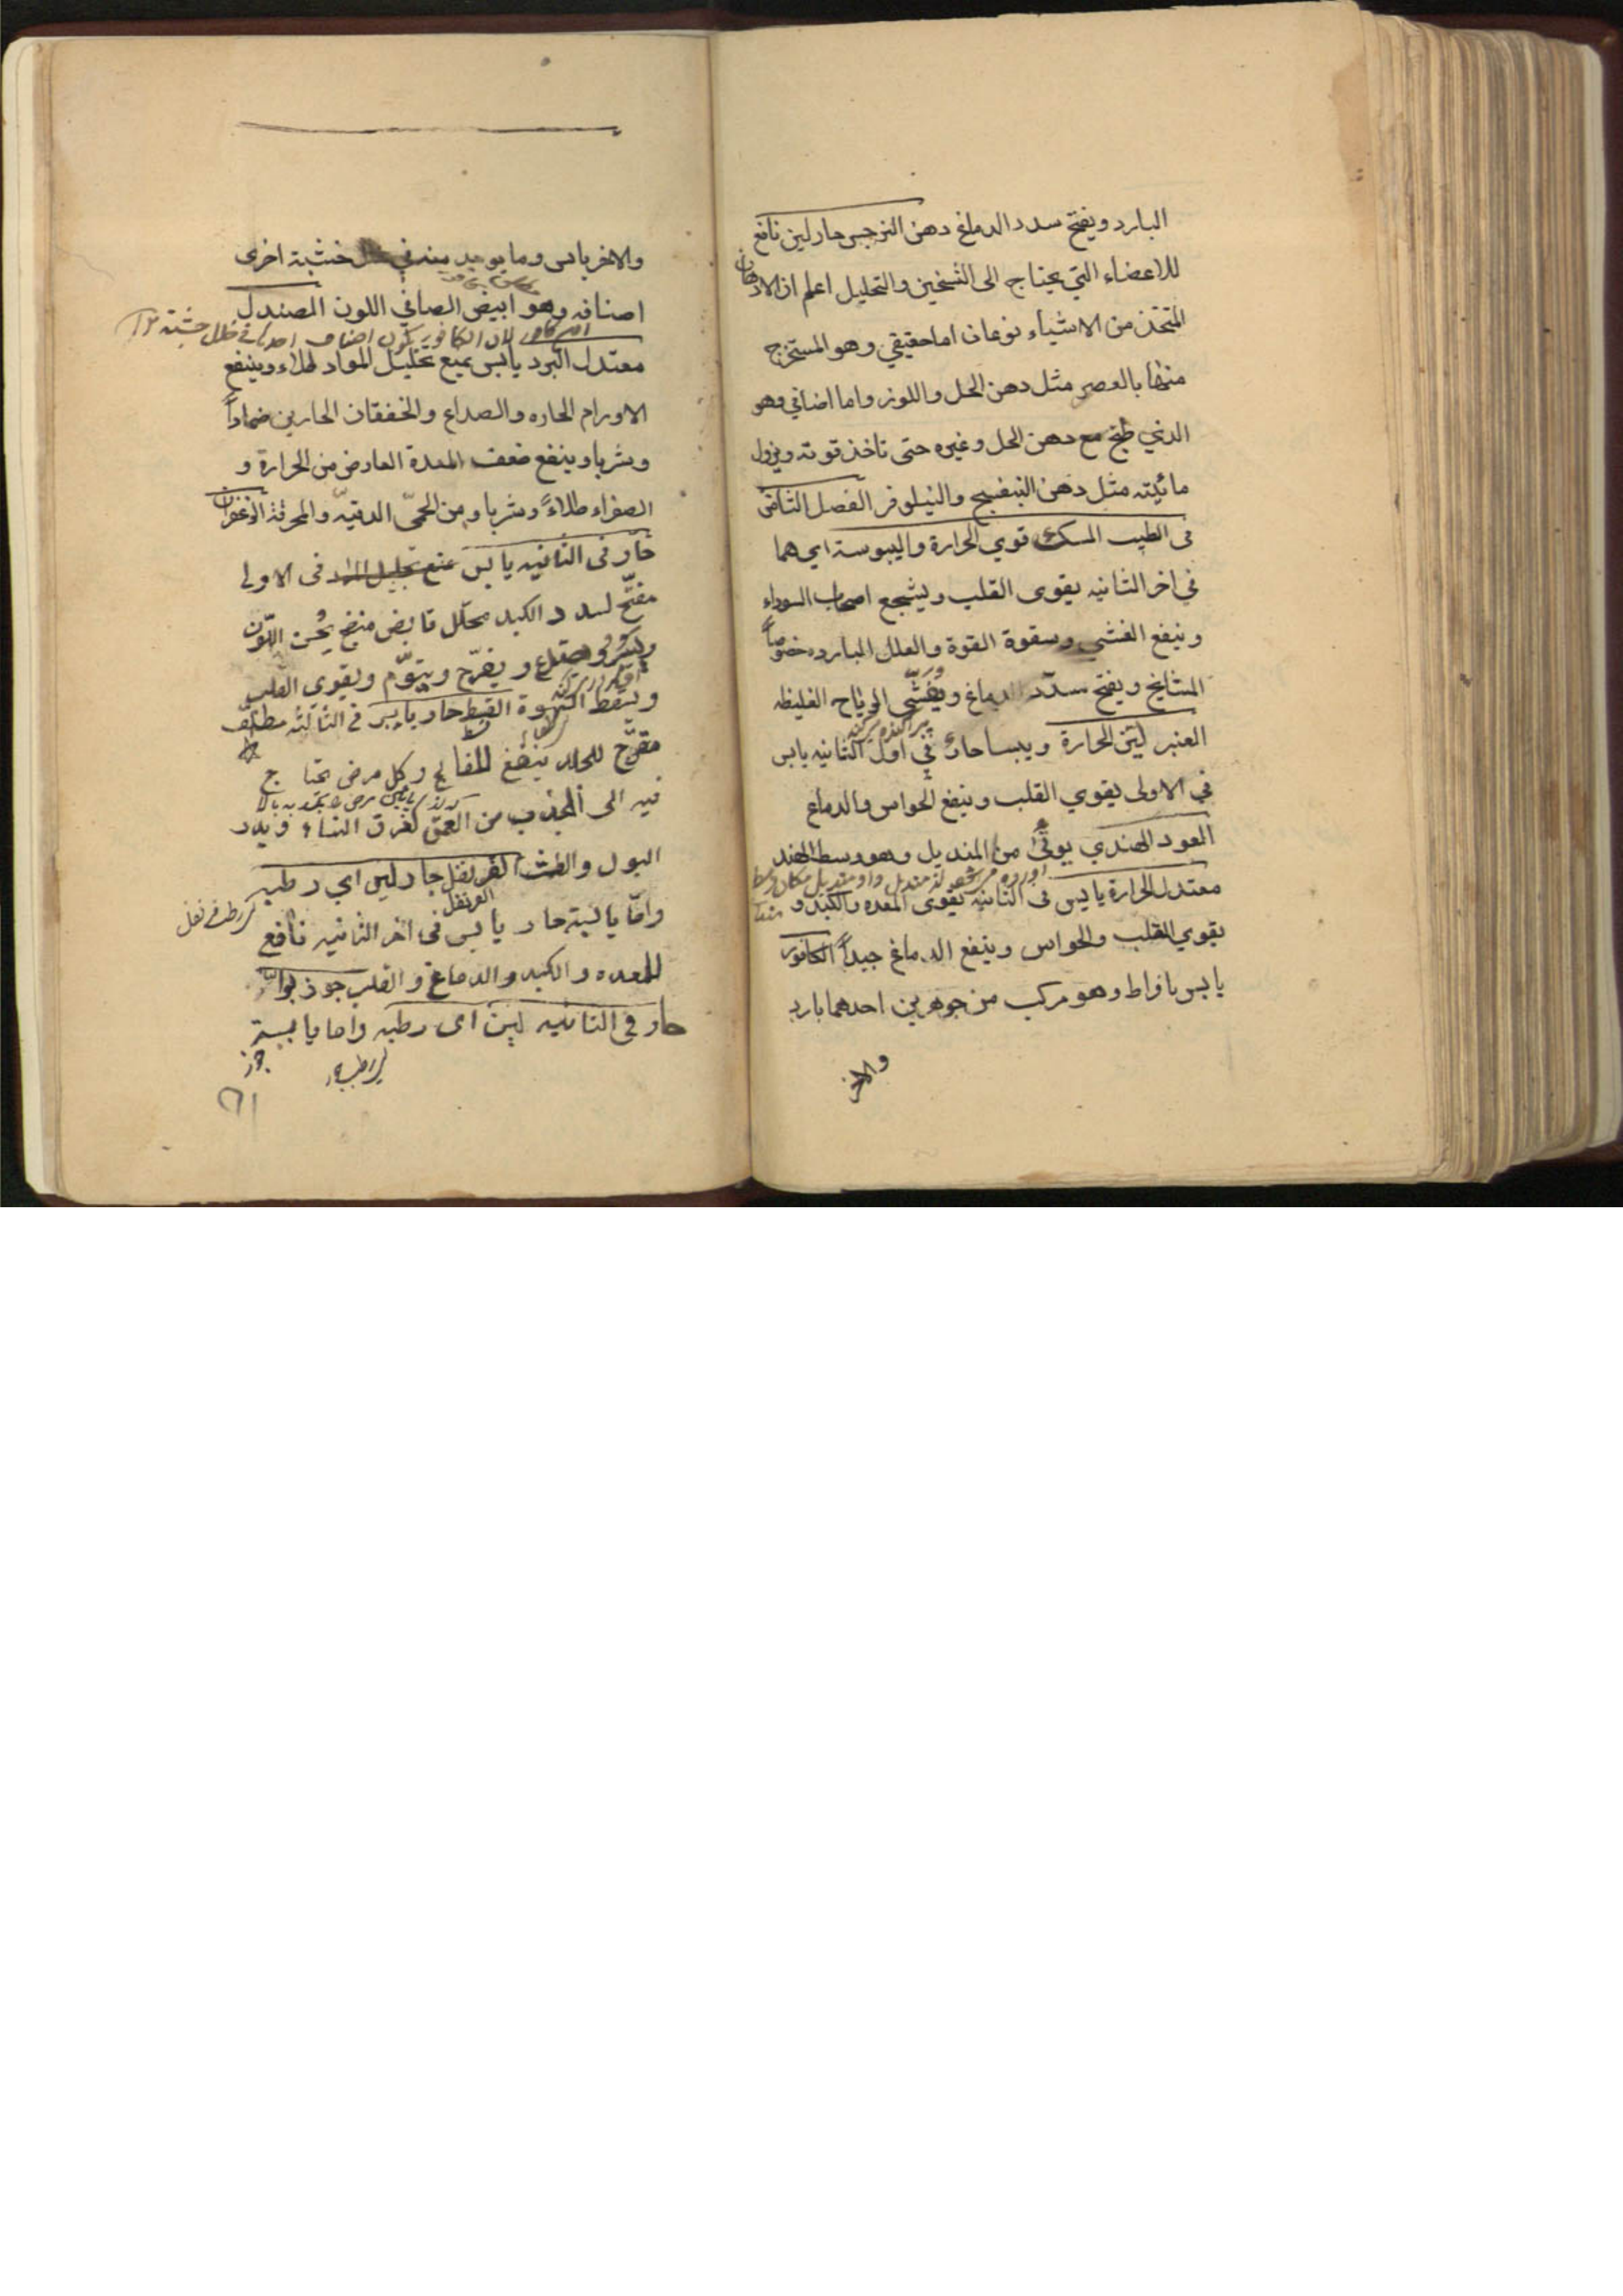 البارد ويفتح سدد الدماغ دهن النرجس حار لين نافع
للاعضاء التي يحتاج الى التسخين والتحليل اعلم ان الادهان
المتخذ من الاشياء نوعان اما حقيقي وهو المستخرج
منها بالعصر مثل دهن الحل واللوز واما اضافي وهو
الذي طبخ مع دهن الحل وغيره حتى تاخذ قوته ويزول
مائيته مثل دهن البنفسج والنيلوفر الفصل الثامن
في الطيب المسك قوي الحرارة واليبوسة اي هما
في اخر الثانيه يقوى القلب ويشجع اصحاب السوداء
وينفع الغشي وسقوة القوة والعلل البارده خصوصاً
المشايخ ويفتح سدد الدماغ ويفشي الرياح الغليظه
العنبر لين الحرارة ويبسا حار في اول الثانيه يابس
في الاولى يقوي القلب وينفع الحواس والدماغ
العود الهندي يوتى من المنديل وهو وسط الهند
معتدل الحرارة يابس في الثانيه يقوى المعده والكبد و
يقوي القلب والحواس وينفع الدماغ جيداً الكافور
يابس بافراط وهو مركب من جوهرين احدهما بارد
والاخر
والاخر يابس وما يوجد منه في خشبة اخرى
اصنافه وهو ابيض الصافي اللون الصندل
لان الكافور يكون اصناف
معتدل البرد يابس يمنع تحليل المواد طلاء وينفع
الاورام الحاره والصداع والخفقان الحارين ضماداً
وشربا وينفع ضعف المعدة العارض من الحرارة و
الصفراء طلاءً وشربا ومن الحمّى الدقيّه والمحرقة الزعفران
حار في الثانيه يابس في الاولى
مفتّح لسدد الكبد محلّل قابض منضج يحسن اللّون
ويسكر ويصدع ويفرّح وينوّم ويقوي القلب
ويسقط الشهوة القسط حار يابس في الثالثه مطلف
مقرّح للجلد ينفع للفالج وكل مرض تحتاج
فيه الى الجذب من العمق لعرق النساء ويدر
البول والطمث القرنفل حار لين اي رطبه
القرنفل
واما يابسة حار يابس في اخر الثانيه نافع
للمعده والكبد والدماغ والقلب جوذبوا
حار في الثانيه لين اى رطبه واما يابسة
جوز